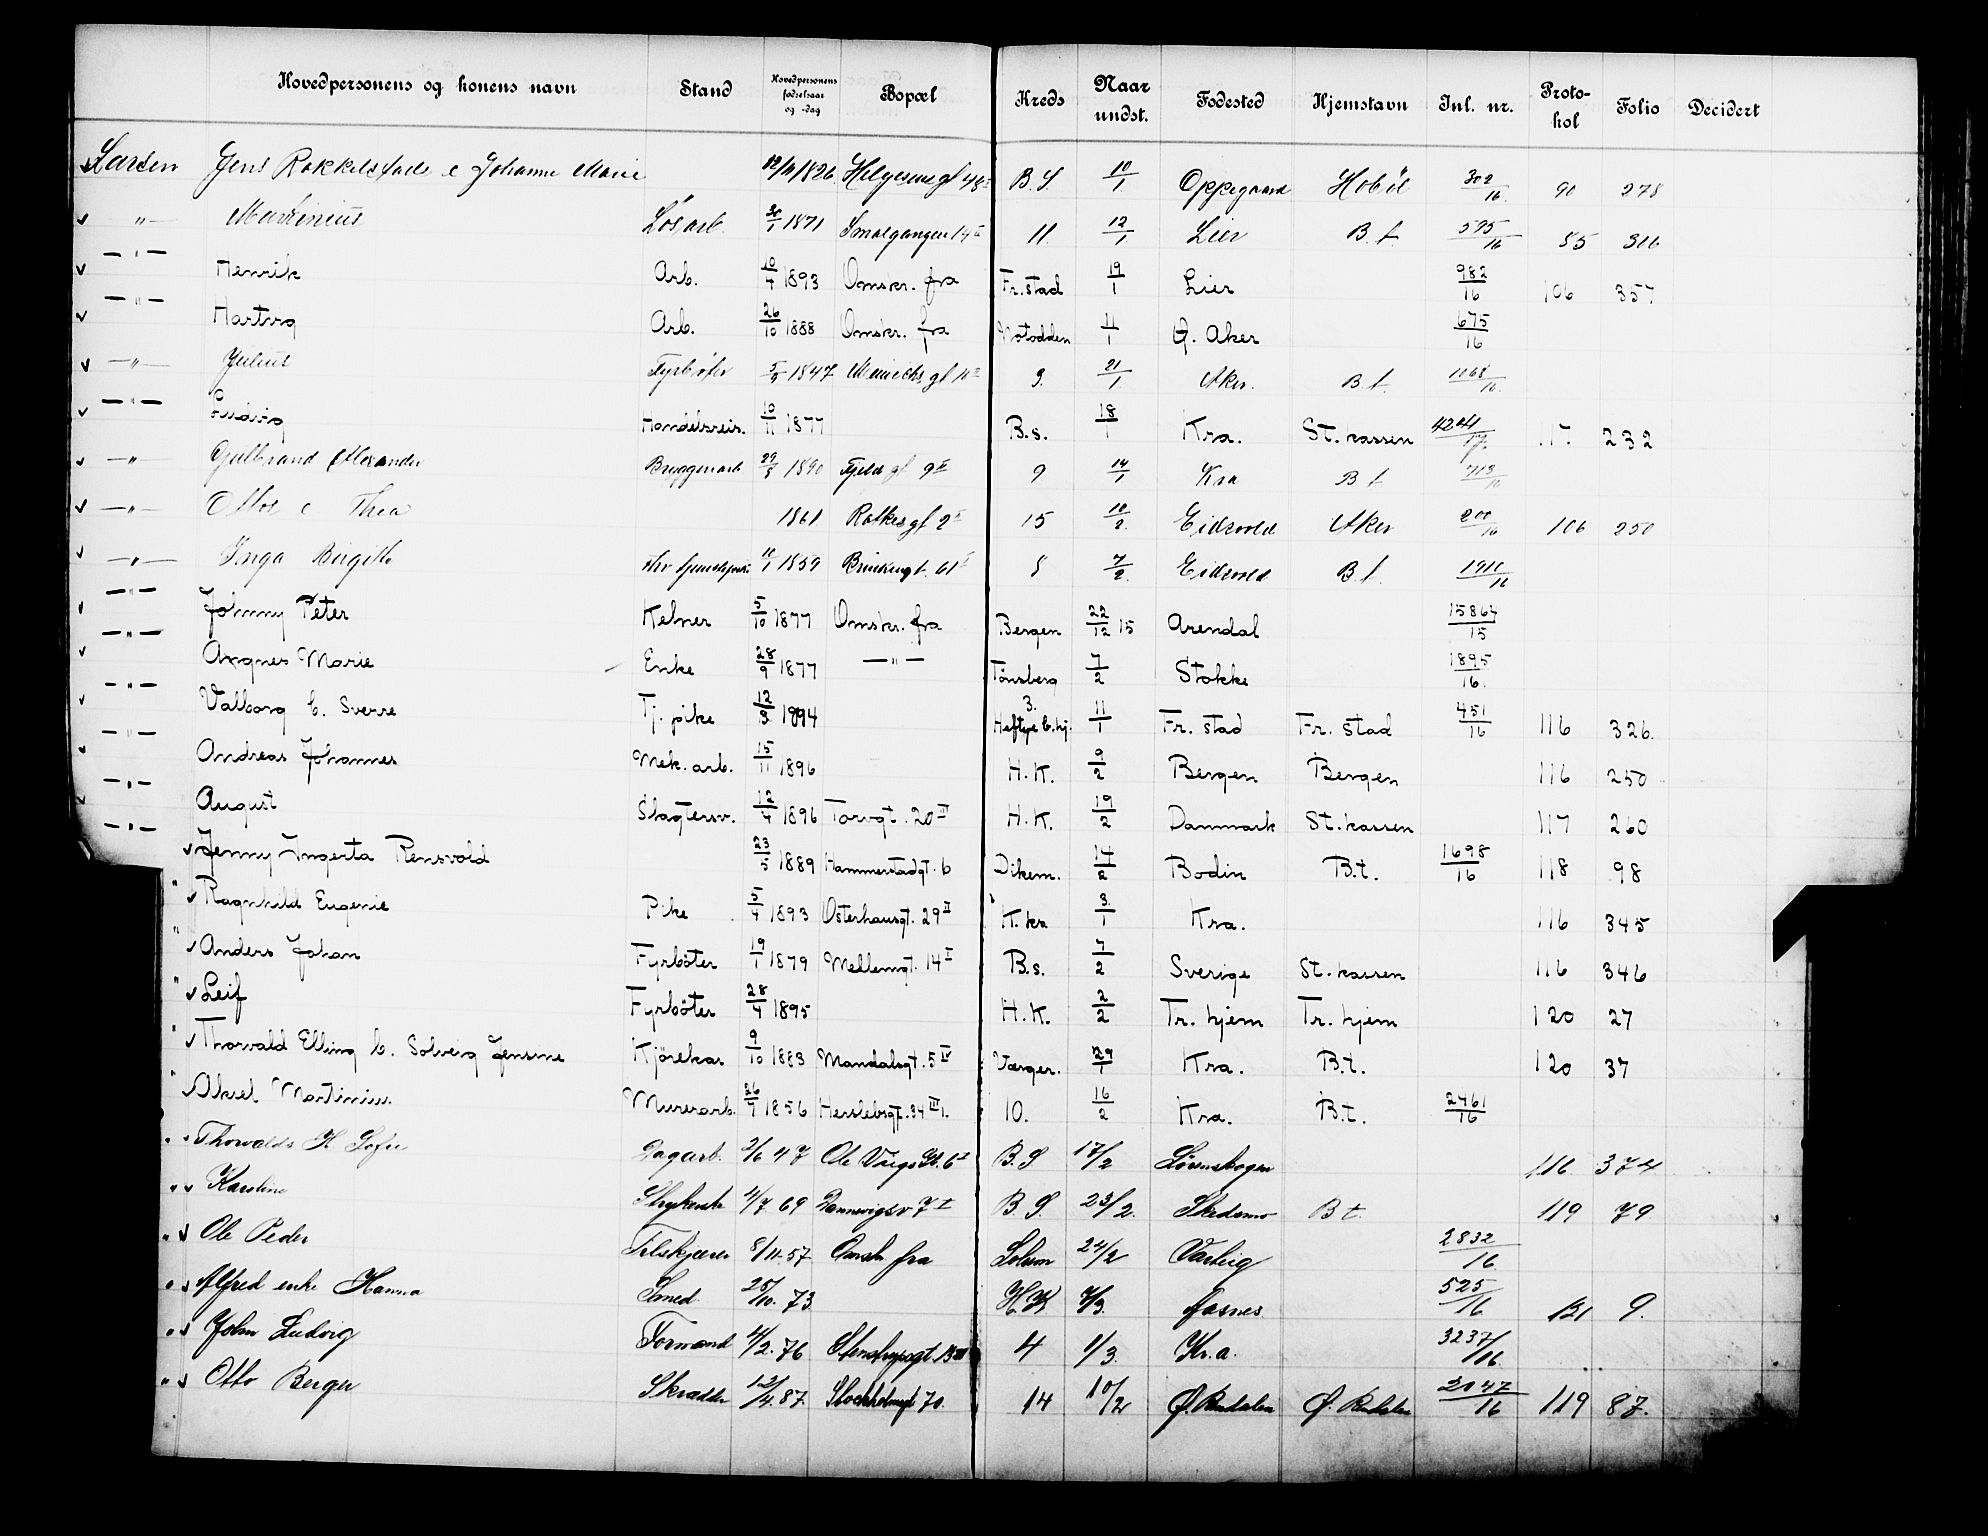 Hovedpersonens og konens navn Stand Hovedpersonens fødselsaar og -dag Bopæl Kreds Naar undst. Fødested Hjemstavn Inl. nr. Protokol Folio Decidert
Larsen Jens Rakkelstad e Johanne Marie 1826 Helgesens gt 48 B.S 10/1 Oppegaard Hobøl 302/16 90 278
— " — Martinius Løsarb. 20/1 1871 Smalgangen 14 II 11 12/1 Lier B.t 595/16 85 316
— " — Henrik Arb. 10/4 1893 Omskr. fra Fr.stad 19/1 Lier 982/16 106 357
— " — Hartvig Arb. 26/10 1888 Omskr. fra Notodden 11/1 Ø. Aker 675/16
— " — Julius Fyrbøter 1847 9. 21/1 Aker. B.t. 1068/16.
— " — Ludvig Handelsreis. 10/11 1877 B.s. 18/1 Kra. St. kassen 117. 232
— " — Gulbrand Alexander Bryggerarb 29/8 1890 Fjeldgt 9 II 9 14/1 Kra B t 713/16
— " — e Thea 1861 Ratkesgt 2 I 15 10/2. Eidsvold Aker 200/16 106 250
— " — Inga Birgitte 1859 61 I 8 7/2. Eidsvold B.t. 1911/16
— " — Johnny Peter Kelner 5/10 1877 Omskr. fra Bergen 22/12 15 Arendal 15864/15
— " — Angnes Marie Enke 28/9 1877 — " — Tønsberg 7/2 Stokke 1895/16.
— " — Valborg b. Sverre Tj. pike 12/3 1894 3. Heftye b.hj. 11/1 Fr. stad Fr. stad 451/16 116 326.
— " — Andreas Johannes Mek. arb. 15/11 1896 H.K. 9/2 Bergen Bergen 116 250
— " — August Slagtersv. 12/4 1896 Torvgt. 20 III H.K. 19/2 Danmark St.kassen 117 260
— " — Jenny Ingerta Rensvold 23/5 1889 Hammerstadgt. 6 Dikem. 14/2 Bodin B.t. 1698/16 118 98
" Ragnhild Eugenie Pike 5/4 1893 Osterhausgt. 29 II K.kra 3/1 Kra. 116 345
" Anders Johan Fyrbøter 19/1 1879 Mellemgt. 14 I B.s. 7/2 Sverige St. kassen 116 346
" Leif Fyrbøter 28/4 1895 H.K. 2/2 Tr. hjem Tr. hjem 120 27
" Thorvald Elling b. Solveig Jensine Kjørekar 9/10 1883 Mandalsgt. 5 IV Værger. 29/1 Kra. B.t. 120 37
" Aksel Martinius Murerarb. 26/7 1856 Herslebsgt. 34 III 1. 10. 16/2 Kra. B.t. 2461/16
" Thorvalds H Sofie Dagarb. 2/6 47 Ole Vigs Gt. 6 I B.S 17/2 Lørenskogen 116 374
" Karoline Strykerske 4/7 69 Dannevigsv 7 I B.S. 23/2. Skedsmo B t. 119 79
" Ole Peder Filskjærer 8/11. 57 Omsk fra Solum 24/2 Varteig 2832/16.
" Alfred enke Hanna Smed 25/10. 73 H.K 7/3. Aasnes. 525/16 121 9.
" John Ludvig Formand 4/2. 76 Stenstrupsgt. 13 III 4 1/3. Kr.a. 3237/16
" Otto Berger Skrædder 12/4. 87. Stockholmsgt 70. 14 10/2 Ø. Rendalen Ø. Rendalen 2047/16 119 87.